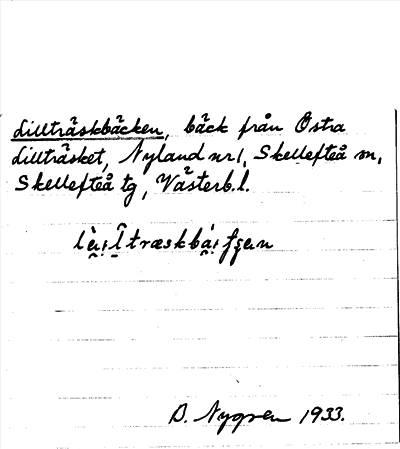 Lillträskbäcken, bäck från Östra
Lillträsket, Nyland nr 1, Skellefteå m,
Skellefteå tg, Västerb. l.
D. Nygren 1933.